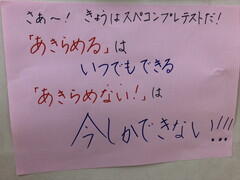 さぁ～！ きょうはスペコンプレテストだ！
「あきらめる」は
いつでもできる
「あきらめない！」は
今しかできない!!!